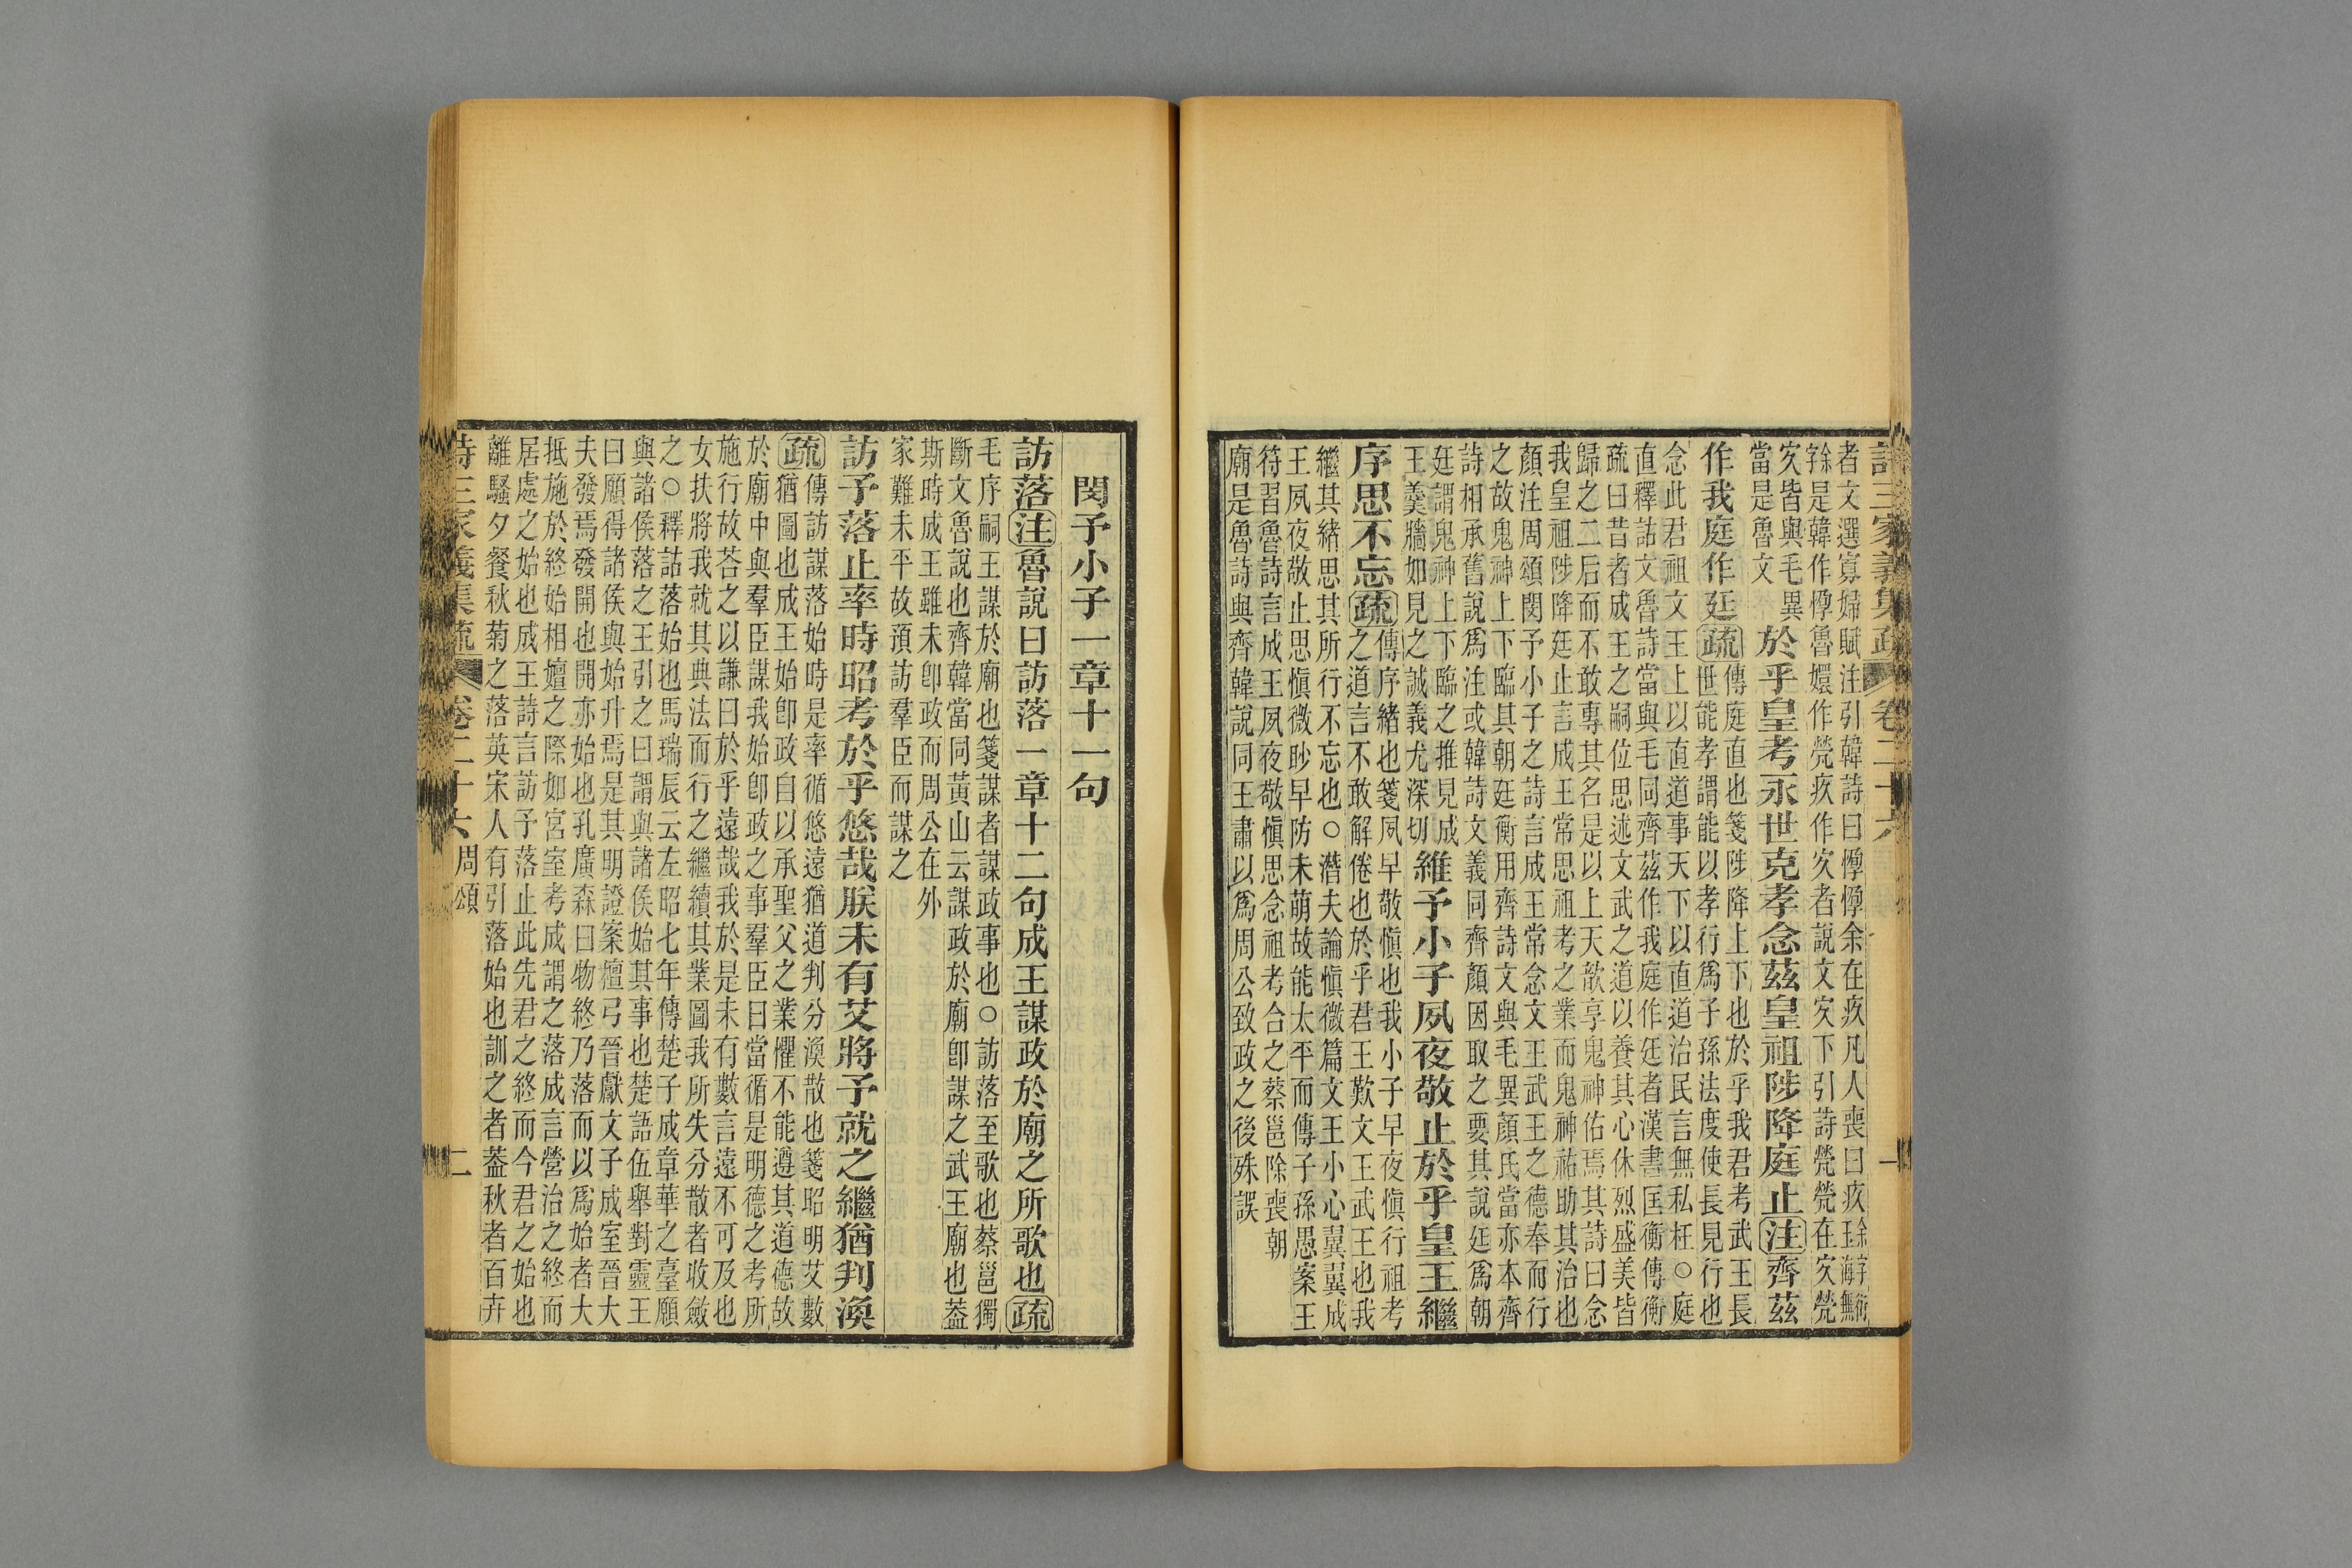 詩三家義集疏 卷二十六 一
者文選寡婦賦注引韓詩曰惸惸余在疚凡人喪曰疚
字是韓作惸魯嬛作煢疚作㝌者說文㝌下引詩煢煢在㝌煢
㝌皆與毛異
當是魯文
於乎皇考永世克孝念茲皇祖陟降庭止注齊茲
作我庭作廷疏
傳庭直也箋陟降上下也於乎我君考武王長
世能孝謂能以孝行爲子孫法度使長見行也
念此君祖文王上以直道事天下以直道治民言無私枉○庭
直釋詁文魯詩當與毛同齊茲作我庭作廷者漢書匡衡傳衡
疏曰昔者成王之嗣位思述文武之道以養其心休烈盛美皆
歸之二后而不敢專其名是以上天歆享鬼神佑焉其詩曰念
我皇祖陟降廷止言成王常思祖考之業而鬼神祐助其治也
顏注周頌閔予小子之詩言成王常念文王武王之德奉而行
之故鬼神上下臨其朝廷衡用齊詩文與毛異顏氏當亦本齊
詩相承舊說爲注或韓詩文義同齊顏因取之要其說廷爲朝
廷謂鬼神上下臨之推見成
王羹牆如見之誠義尤深切
維予小子夙夜敬止於乎皇王繼
序思不忘疏
傳序緒也箋夙早敬愼也我小子早夜愼行祖考
之道言不敢解倦也於乎君王歎文王武王也我
繼其緒思其所行不忘也○潛夫論愼微篇文王小心翼翼成
王夙夜敬止思愼微眇早防未萌故能太平而傳子孫愚案王
符習魯詩言成王夙夜敬愼思念祖考合之蔡邕除喪朝
廟是魯詩與齊韓說同王肅以爲周公致政之後殊誤
閔予小子一章十一句
訪落注魯說曰訪落一章十二句成王謀政於廟之所歌也疏
毛序嗣王謀於廟也箋謀者謀政事也○訪落至歌也蔡邕獨
斷文魯說也齊韓當同黃山云謀政於廟卽謀之武王廟也葢
斯時成王雖未卽政而周公在外
家難未平故預訪羣臣而謀之
訪予落止率時昭考於乎悠哉朕未有艾將予就之繼猶判渙
疏傳訪謀落始時是率循悠遠猶道判分渙散也箋昭明艾數
也猶圖也成王始卽政自以承聖父之業懼不能遵其道德故
於廟中與羣臣謀我始卽政之事羣臣曰當循是明德之考所
施行故荅之以謙曰於乎遠哉我於是未有數言遠不可及也
女扶將我就其典法而行之繼續其業圖我所失分散者收斂
之○釋詁落始也馬瑞辰云左昭七年傳楚子成章華之臺願
與諸侯落之王引之曰謂與諸侯始其事也楚語伍舉對靈王
曰願得諸侯與始升焉是其明證案檀弓晉獻文子成室晉大
夫發焉發開也開亦始也孔廣森曰物終乃落而以爲始者大
抵施於終始相嬗之際如宮室考成謂之落成言營治之終而
居處之始也成王詩言訪予落止此先君之終而今君之始也
離騷夕餐秋菊之落英宋人有引落始也訓之者葢秋者百卉
詩三家義集疏 卷二十六 周頌 二